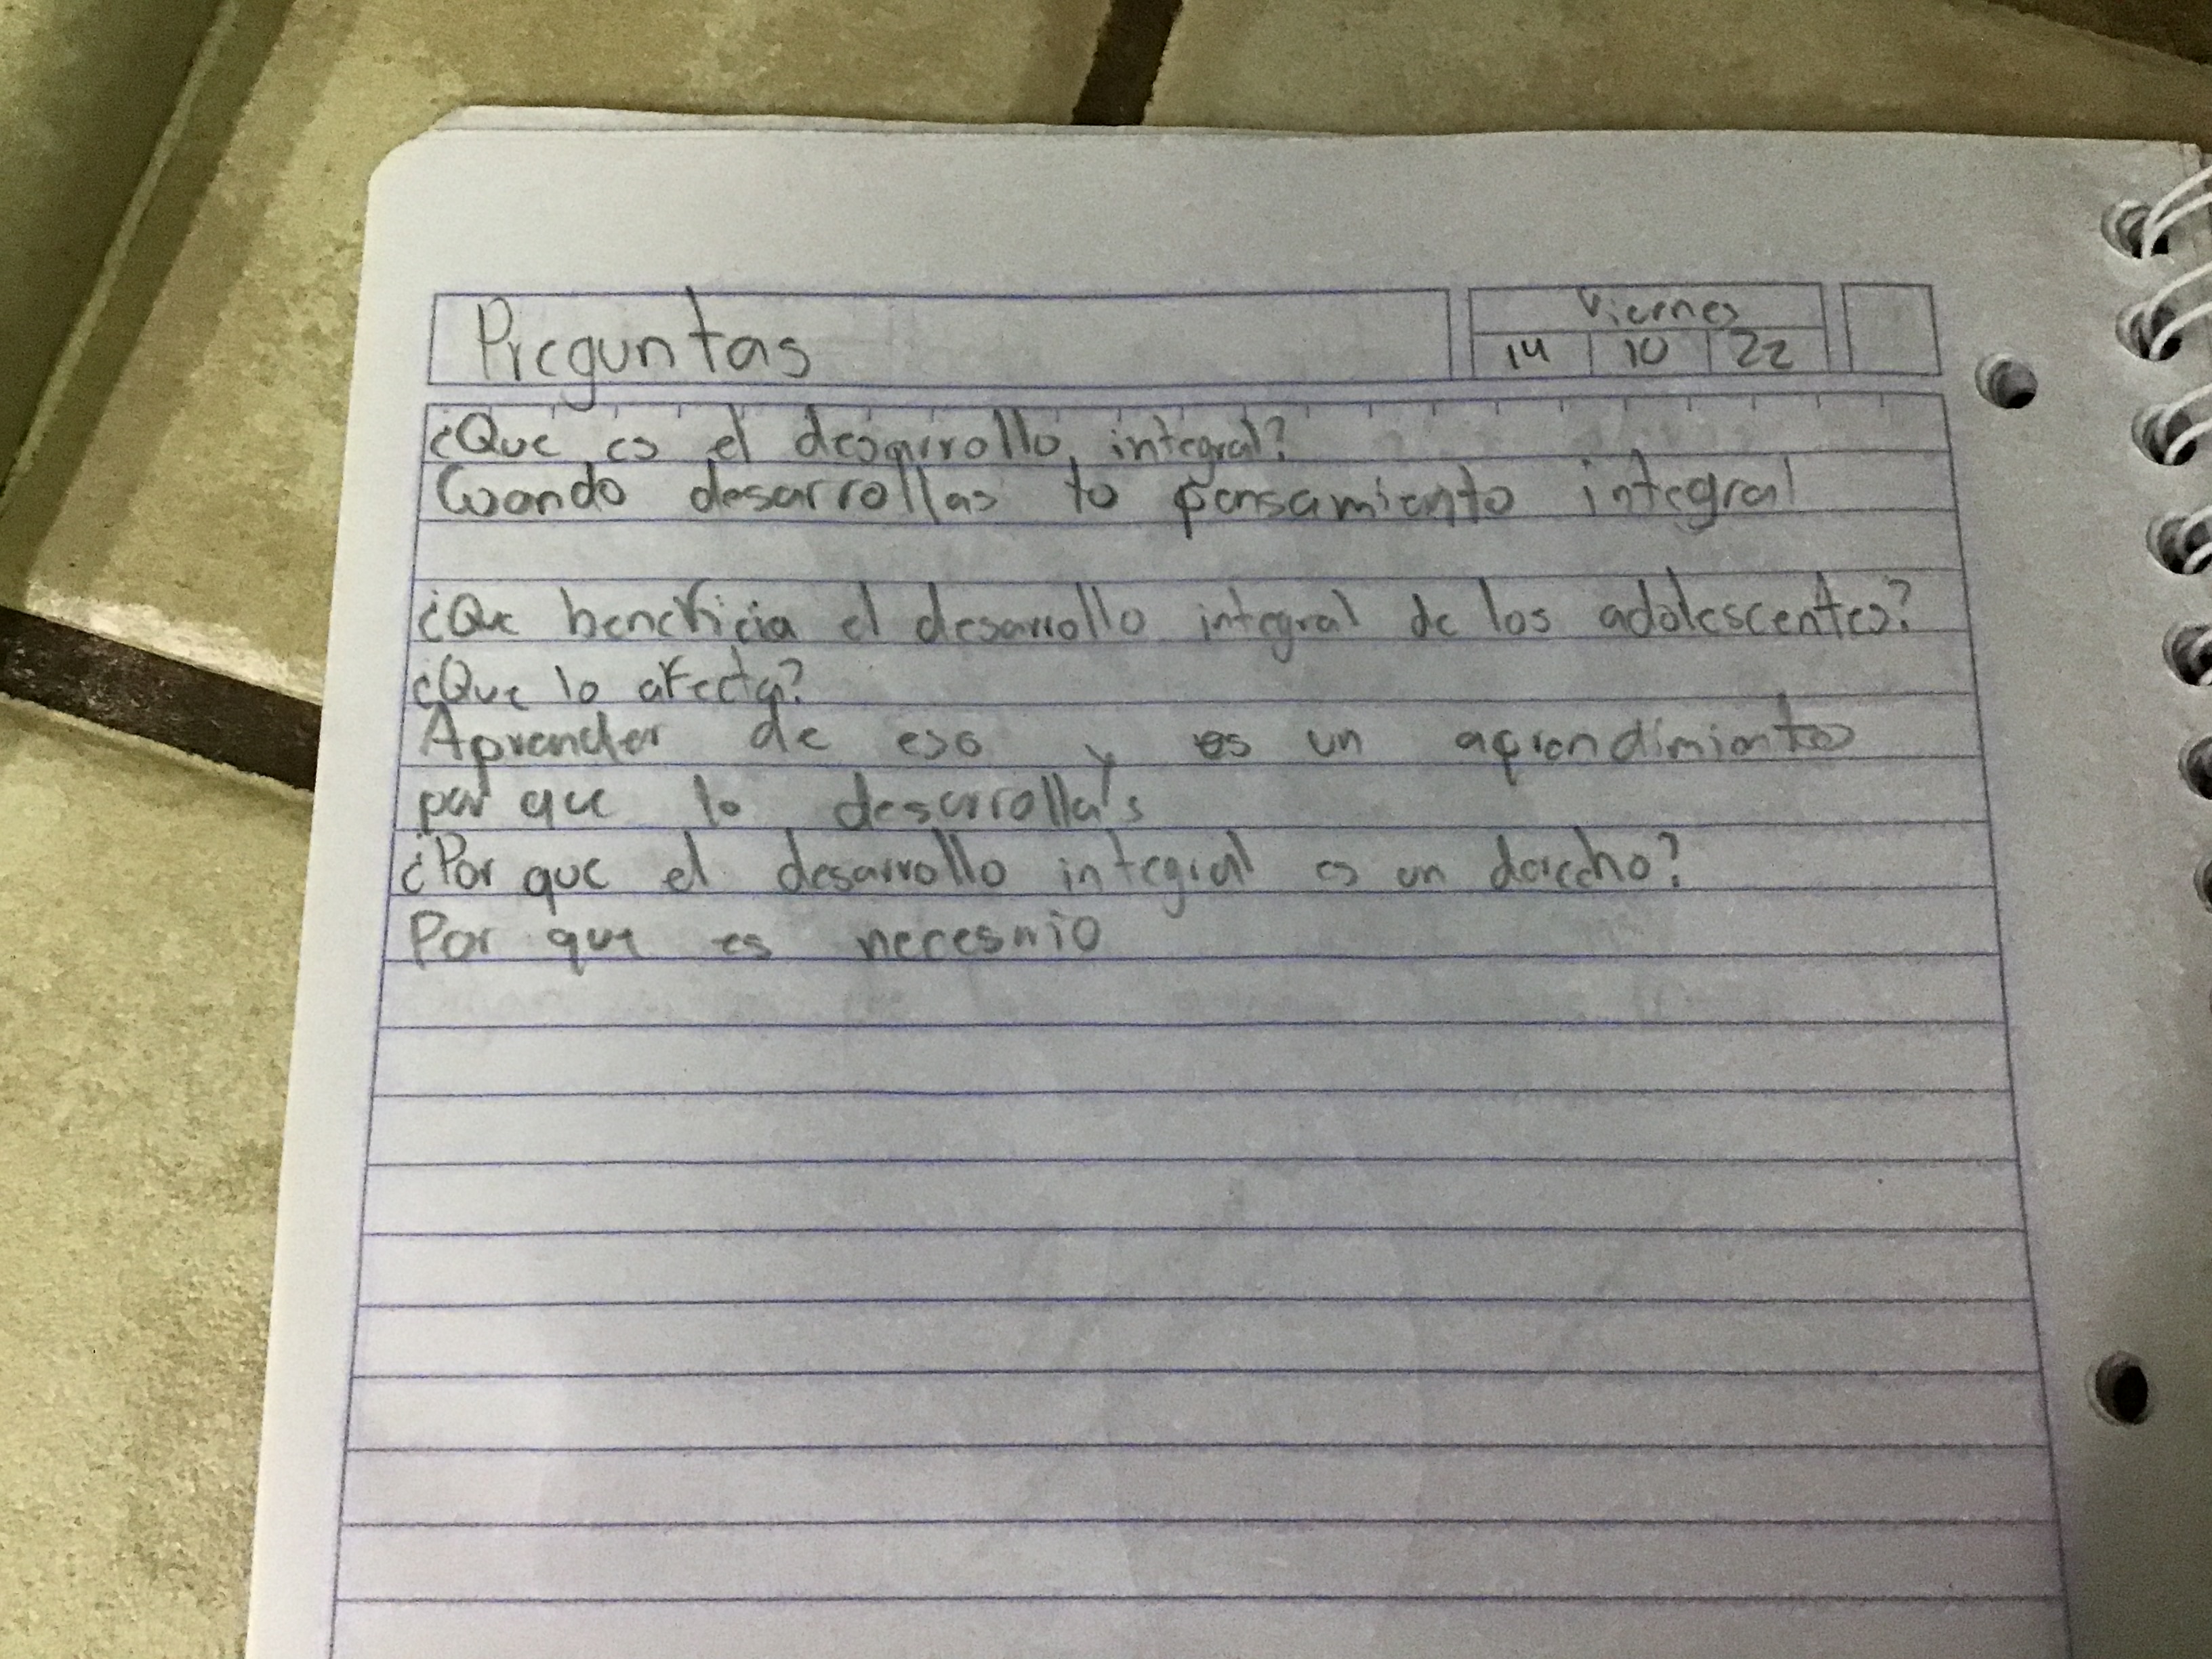 Preguntas
Viernes
14 10 22
¿Que es el desarrollo integral?
Cuando desarrollas tu pensamiento integral
¿Que beneficia el desarrollo integral de los adolescentes?
¿Que lo afecta?
Aprender de eso y es un aprendimiento
por que lo desarrollas
¿Por que el desarrollo integral es un derecho?
Por que es necesario